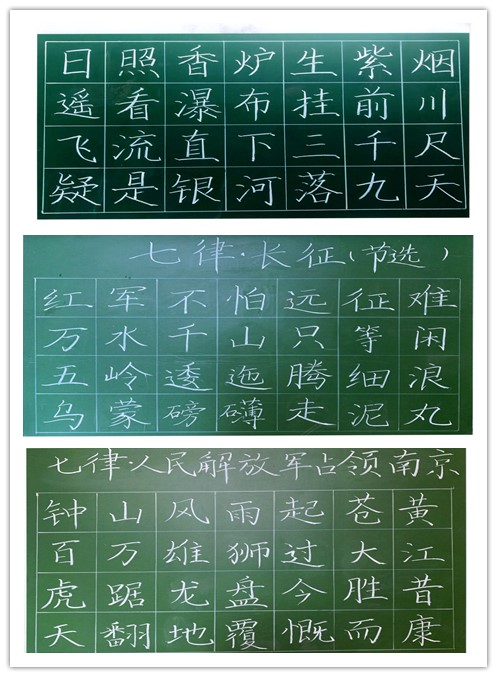 日照香炉生紫烟
遥看瀑布挂前川
飞流直下三千尺
疑是银河落九天
七律·长征(节选)
红军不怕远征难
万水千山只等闲
五岭逶迤腾细浪
乌蒙磅礴走泥丸
七律·人民解放军占领南京
钟山风雨起苍黄
百万雄狮过大江
虎踞龙盘今胜昔
天翻地覆慨而康